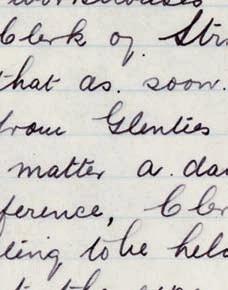 workhouses
Clerk of Str
that as. soon.
from Glenties
matter a. da
ference, Cler
ling to be held